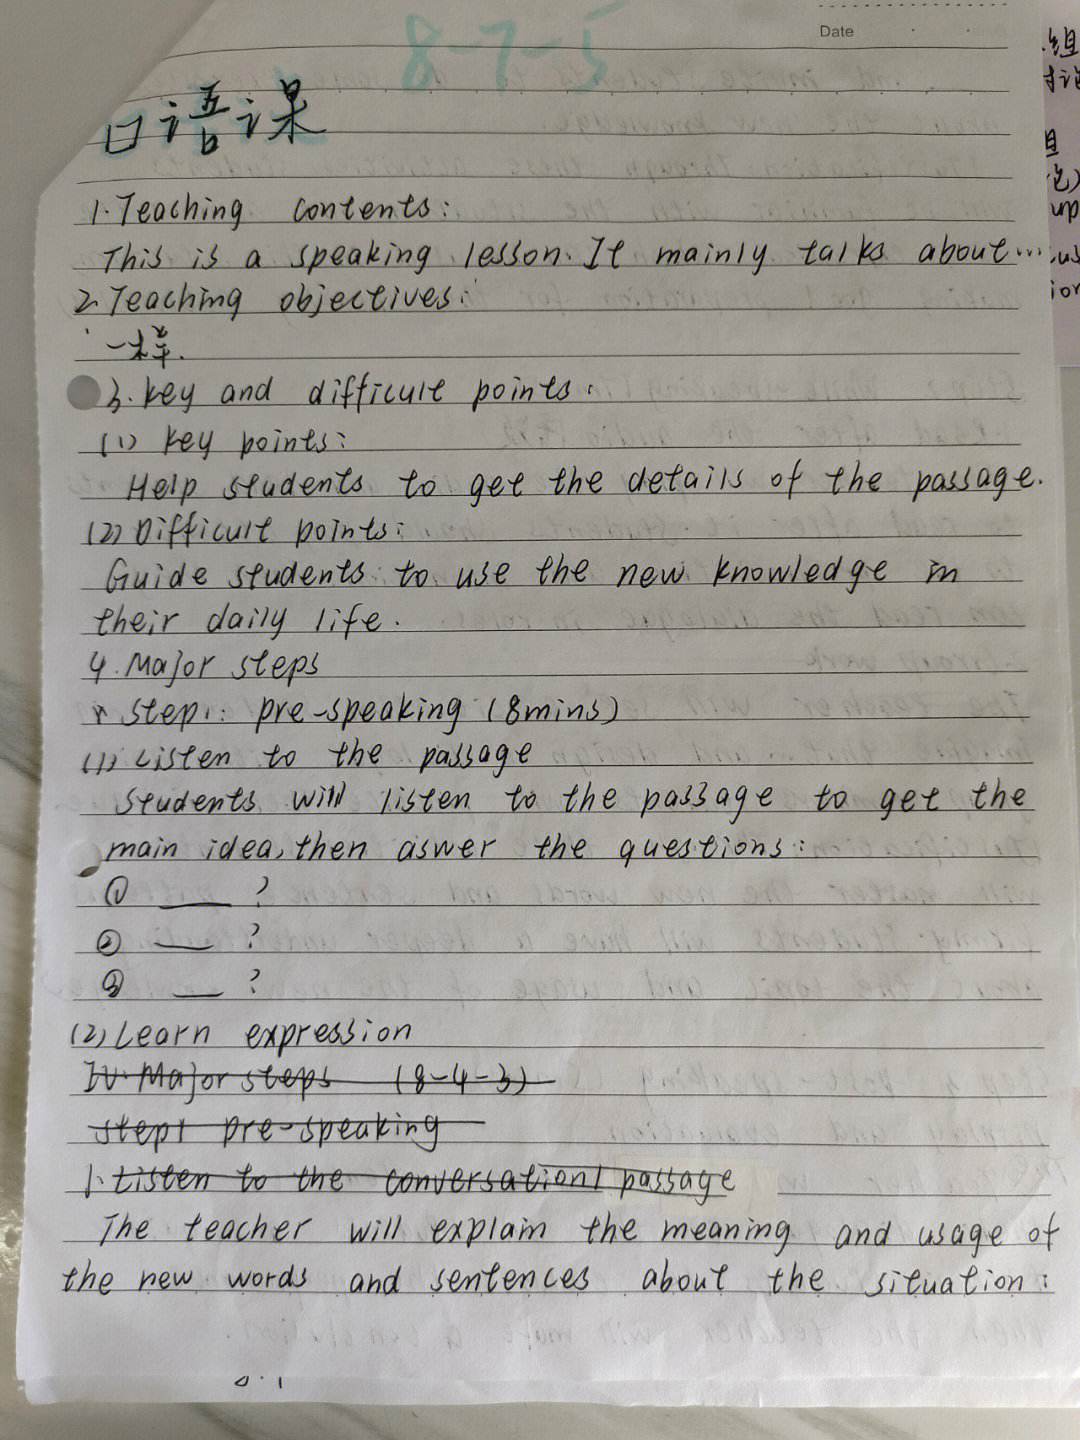 Date
8-7-5
口语课
1. Teaching contents:
This is a speaking lesson. It mainly talks about...
2. Teaching objectives:
一样.
3. key and difficult points:
(1) key points:
Help students to get the details of the passage.
(2) Difficult points:
Guide students to use the new knowledge in
their daily life.
4. Major steps
step1: pre-speaking (8mins)
(1) Listen to the passage
students will listen to the passage to get the
main idea, then aswer the questions:
① __ ?
② __ ?
③ __ ?
(2) Learn expression
IV. Major steps (8-4-3)
step1 pre-speaking
1. Listen to the conversation/passage
The teacher will explain the meaning and usage of
the new words and sentences about the situation:
组
up
ion